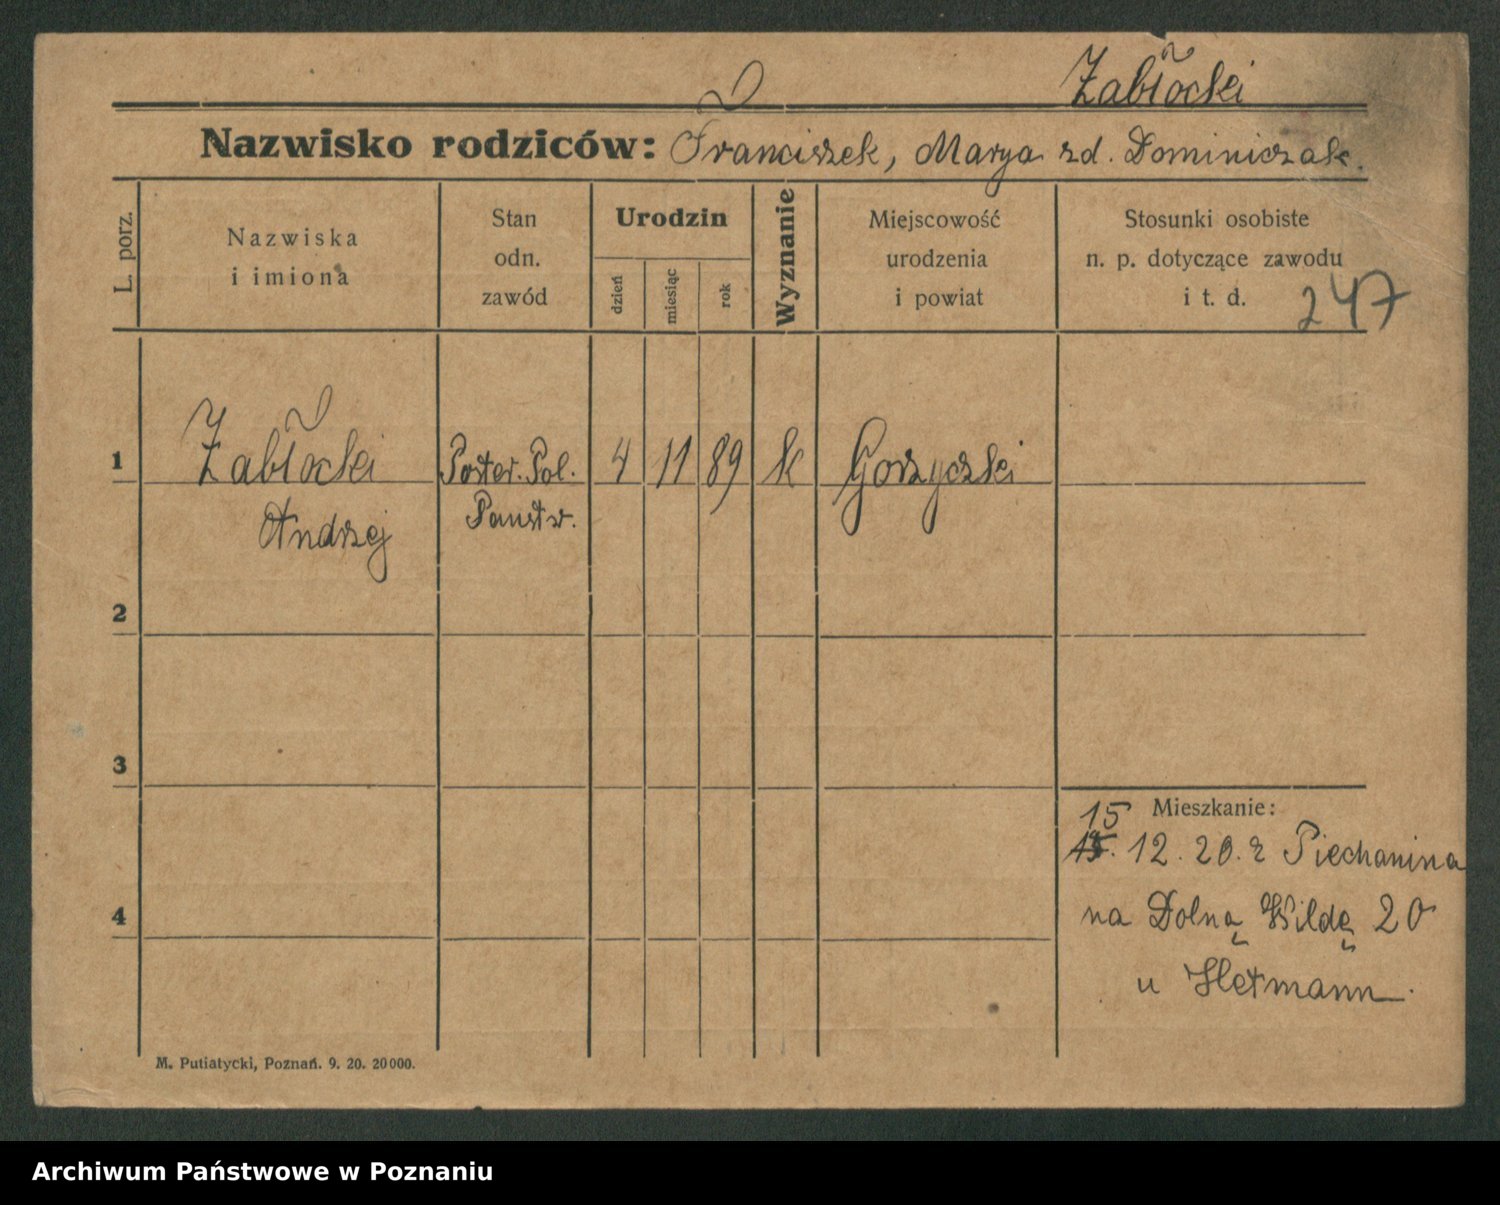 Zabłocki
Nazwisko rodziców: Franciszek, Marya zd. Dominiczak.
L. porz.
Nazwiska
i imiona
Stan
odn.
zawód
Urodzin
dzień
miesiąc
rok
Wyznanie
Miejscowość
urodzenia
i powiat
Stosunki osobiste
n. p. dotyczące zawodu
i t. d. 247
1 Zabłocki Poster. Pol. 4 11 89 k Gorzyczki
Andrzej Państw.
2
3
Mieszkanie:
15
12. 20. z Piechanina
4 na Dolną Wildę 20
u Hetmann.
M. Putiatycki, Poznań. 9. 20. 20000.
Archiwum Państwowe w Poznaniu